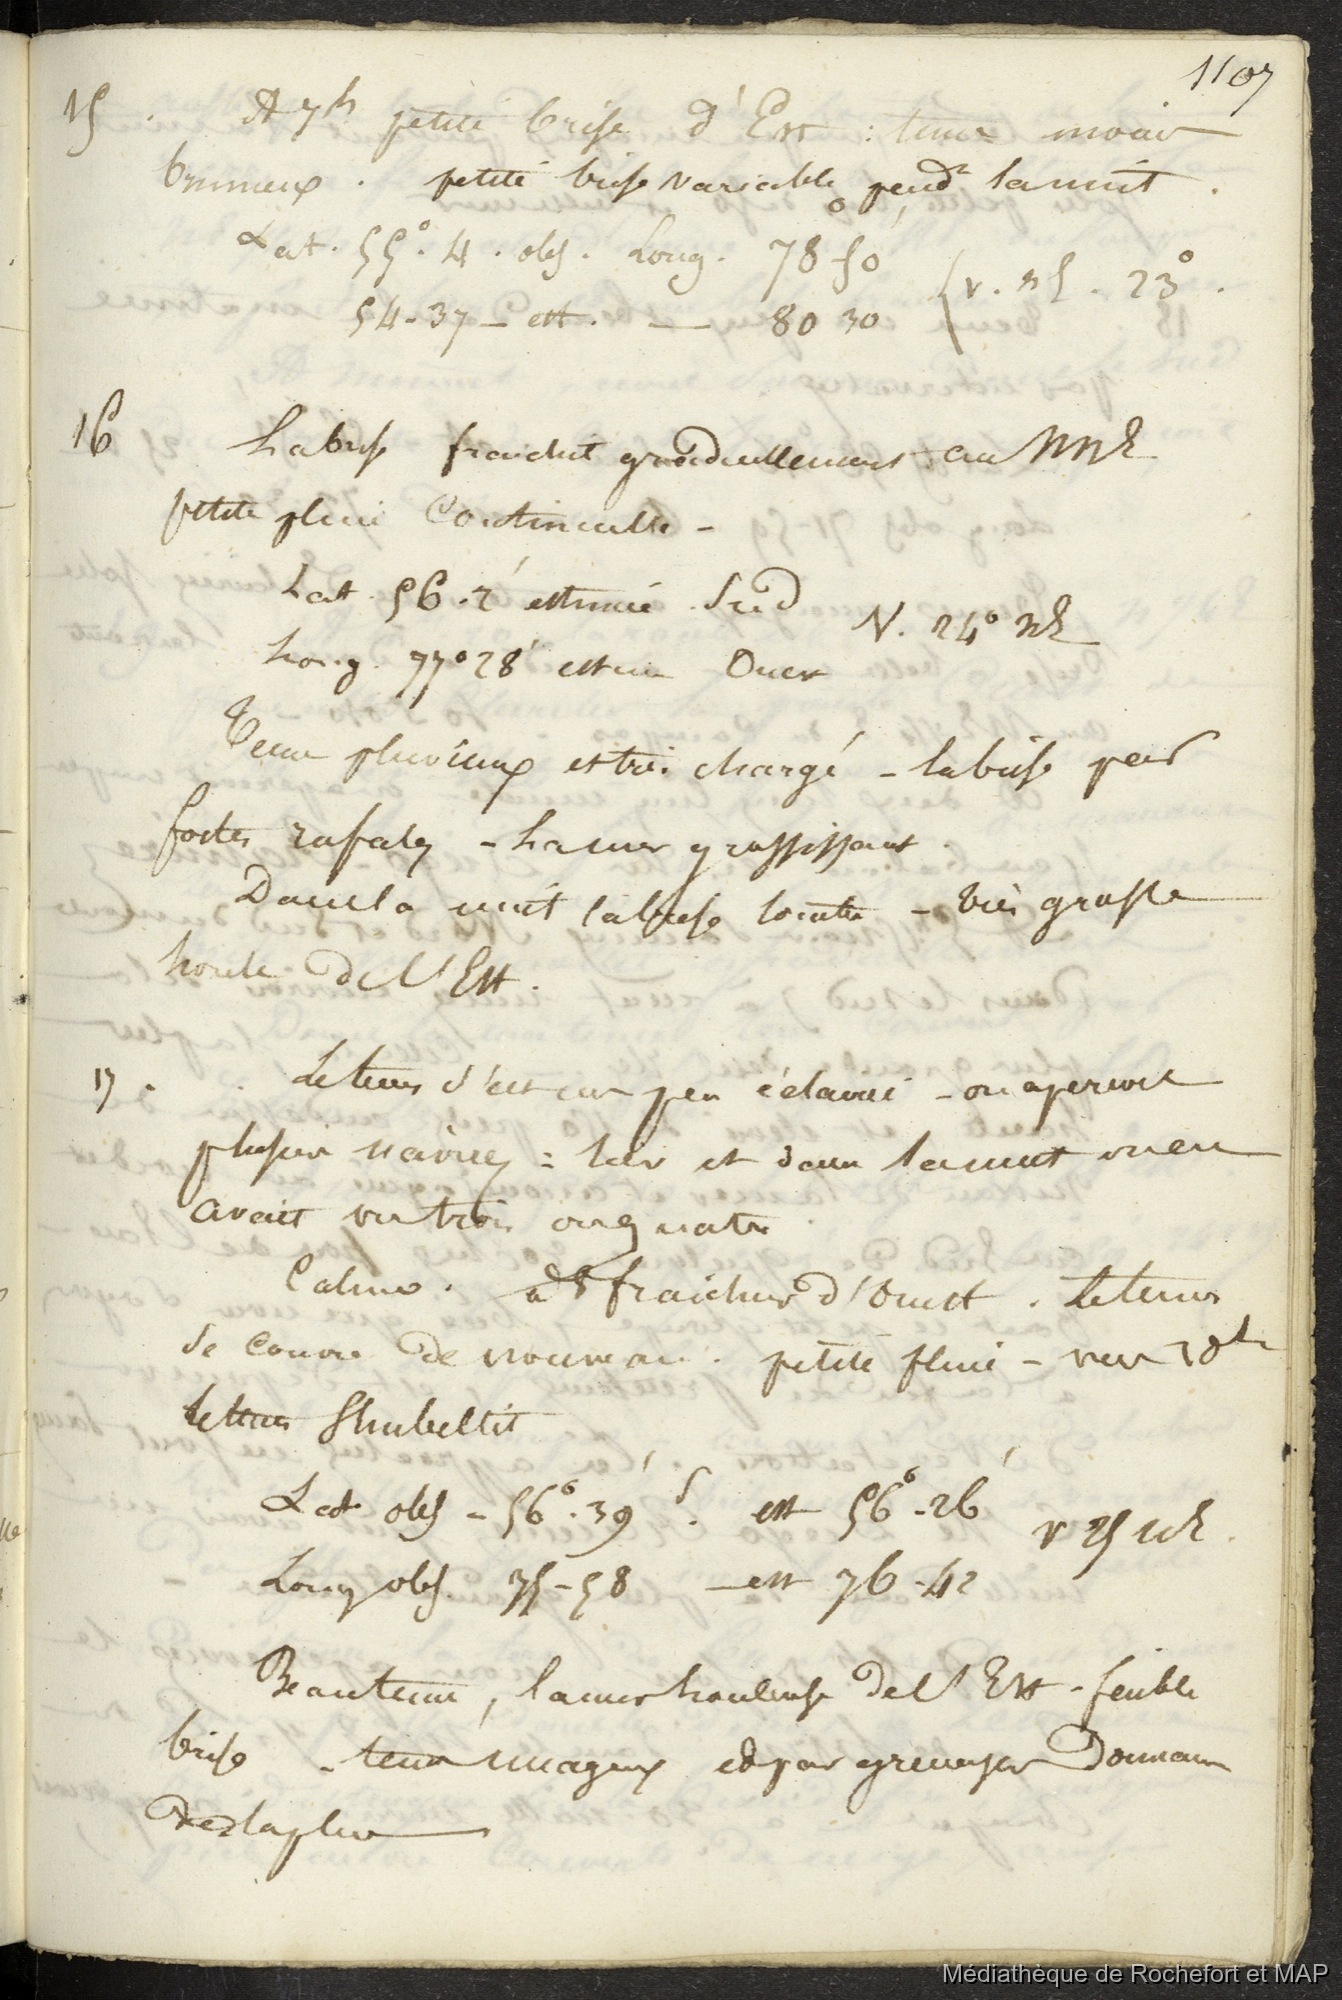 1107
15 . A 7h petite brise d'Est : tems moins
brumeux . petite brise variable pendt la nuit .
Lat . 55° . 4 . obs . Long . 78° 50'
54 - 37 - est . — 80 30 { v . NE . 23° .
16 La brise fraichit graduellement au NNE
petite pluie continuelle -
Lat . 56 . 2' estimée Sud
V. 24° NE
Long . 77° 28' estim Ouest
Tems pluvieux et très chargé - la brise par
fortes rafales - la mer grossissant .
Dans la nuit la brise tombe - très grosse
houle de l'Est .
17 . Le tems s'est un peu éclairci - on aperçoit
plusieurs navires : hier et dans la nuit on en
avait vu trois ou quatre .
Calme . à 8h fraicheur d'Ouest . Le tems
se couvre de nouveau . petite pluie - vers 10h
le tems s'embellit
Lat obs - 56° . 39' S . est 56° - 26'
v 25 NE .
Long obs . 75 - 58 — est 76 - 42
Beau tems , la mer houleuse de l'Est - faible
brise - tems nuageux et par grenasses donnant
de la pluie
Médiathèque de Rochefort et MAP